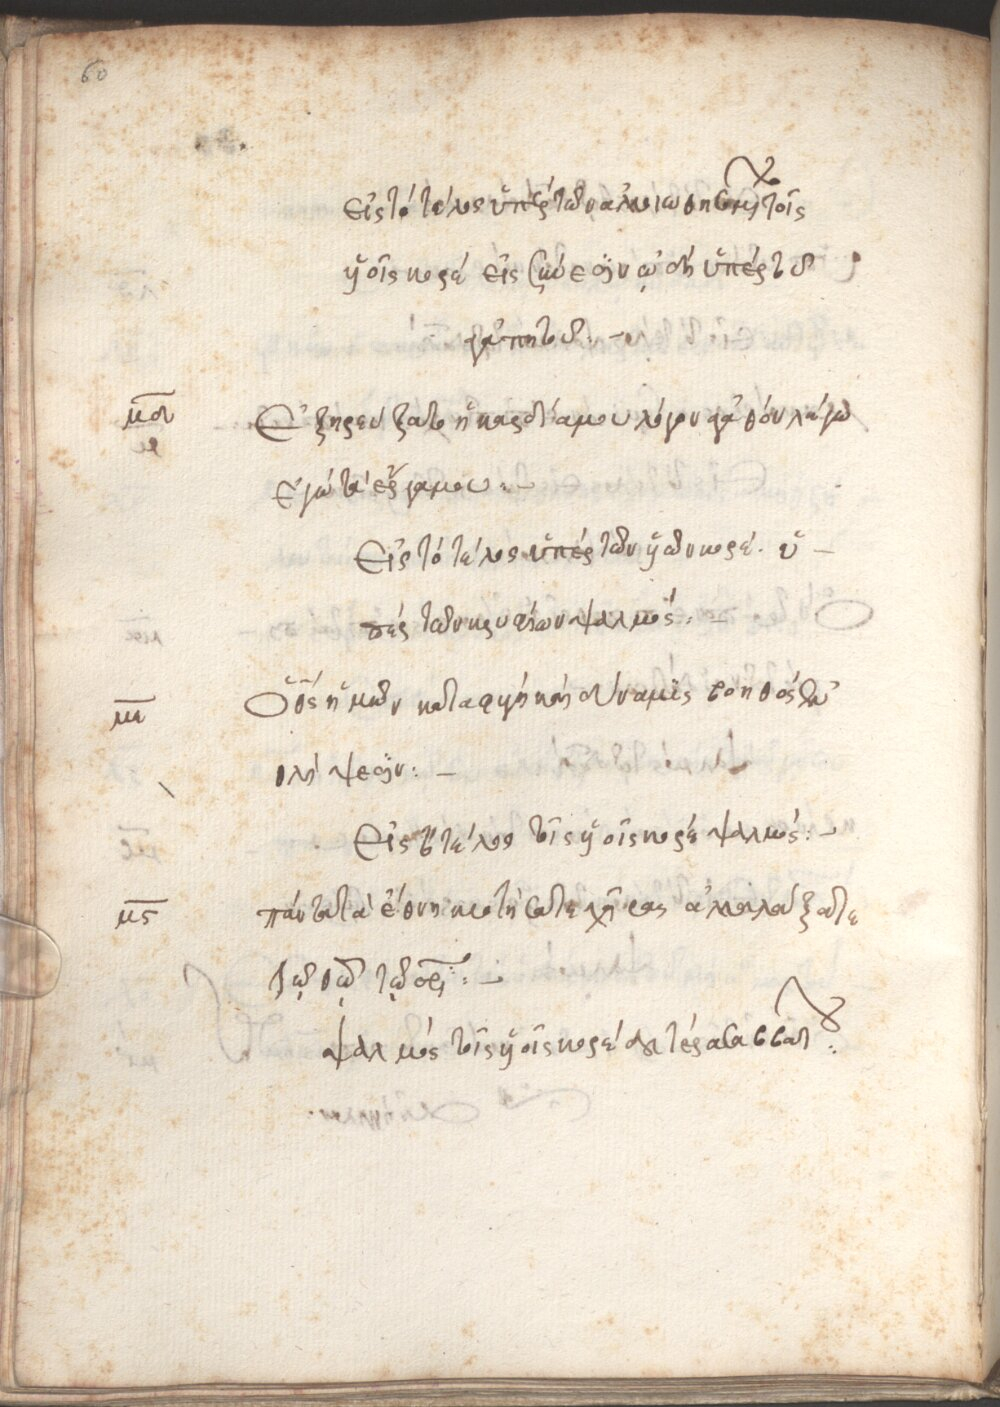 60
εἰς τὸ τέλος ὑπὲρ τῶν ἀλλοιωθησομένων τοῖς
υἱοῖς κορέ εἰς σύνεσιν ᾠδὴ ὑπὲρ τοῦ
ἀγαπητοῦ :-
μδ Ἐξηρεύξατο ἡ καρδία μου λόγον ἀγαθὸν λέγω
ἐγὼ τὰ ἔργα μου :-
Εἰς τὸ τέλος ὑπὲρ τῶν υἱῶν κορέ. ὑ-
πὲρ τῶν κρυφίων ψαλμός :-
με Ὁ θς ἡμῶν καταφυγὴ καὶ δύναμις βοηθὸς ἐν
θλίψεσιν :-
Εἰς τὸ τέλος τοῖς υἱοῖς κορέ ψαλμός :-
μς πάντα τὰ ἔθνη κροτήσατε χεῖρας ἀλαλάξατε
τῷ θῷ
ψαλμὸς τοῖς υἱοῖς κορέ δευτέρᾳ σαββάτου :